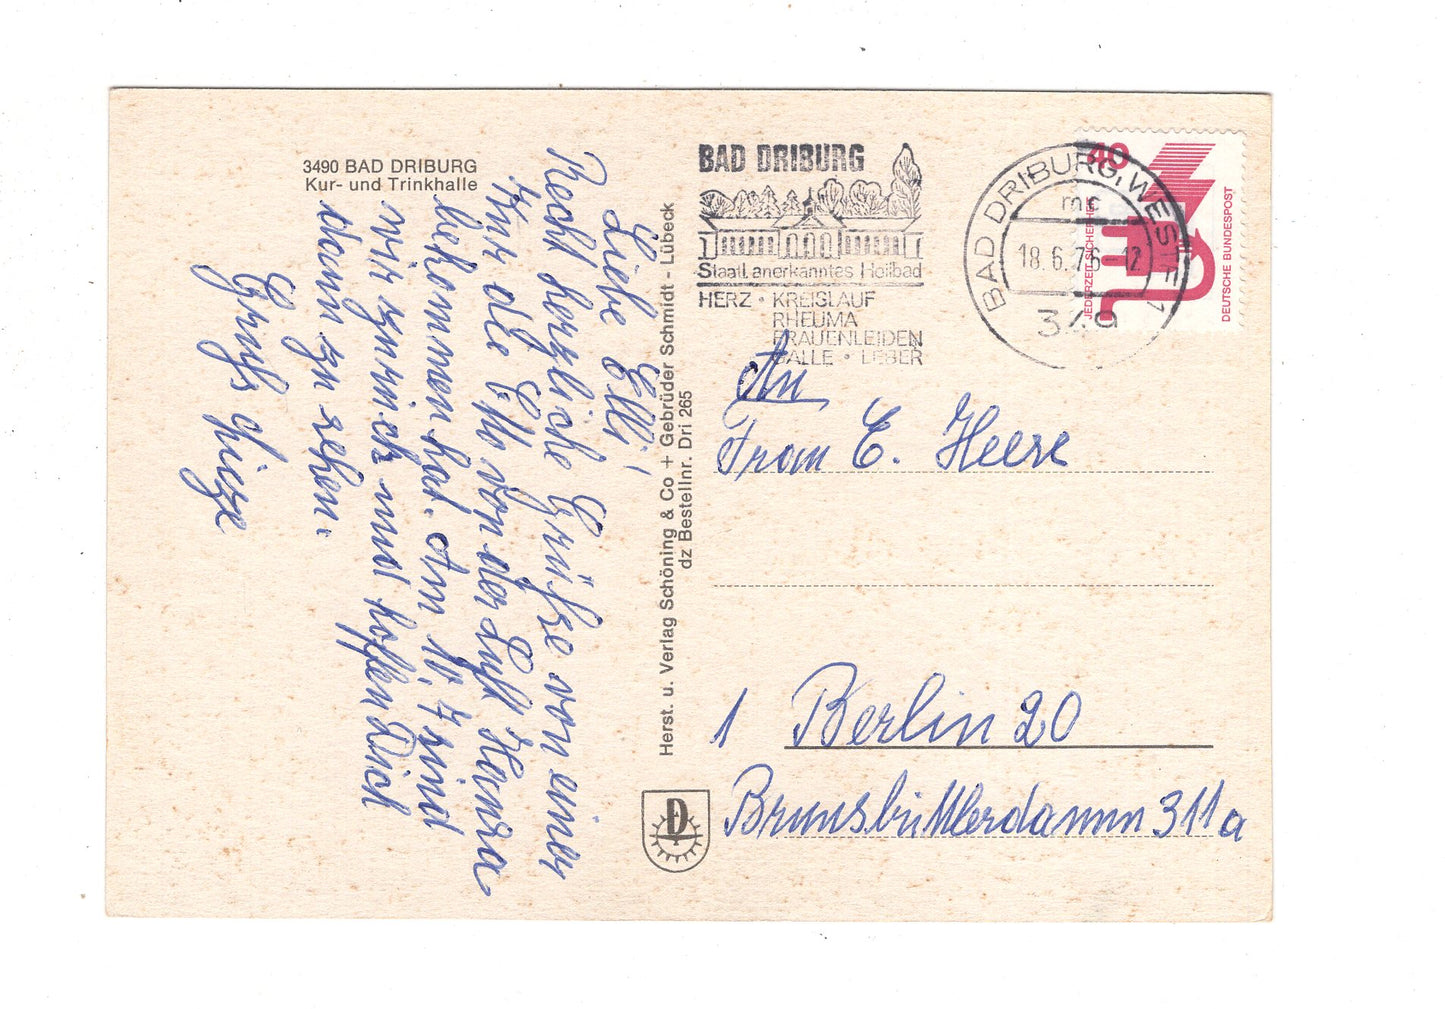 3490 BAD DRIBURG
Kur- und Trinkhalle
Liebe Elli!
Recht herzliche Grüße von einer
Kur die Otto von der Luft Hansa
bekommen hat. Am 10.7 sind
wir zurück und hoffen Dich
dann zu sehen.
Gruß
Herst. u. Verlag Schöning & Co + Gebrüder Schmidt - Lübeck
dz Bestellnr. Dri 265
D
BAD DRIBURG
Staatl. anerkanntes Heilbad
HERZ · KREISLAUF
RHEUMA
FRAUENLEIDEN
GALLE · LEBER
BAD DRIBURG, WESTF 1
mc
18.6.76-12
349
40
JEDERZEIT SICHERHEIT
DEUTSCHE BUNDESPOST
An
Frau E. Heere
1 Berlin 20
Brunsbüttlerdamm 311a